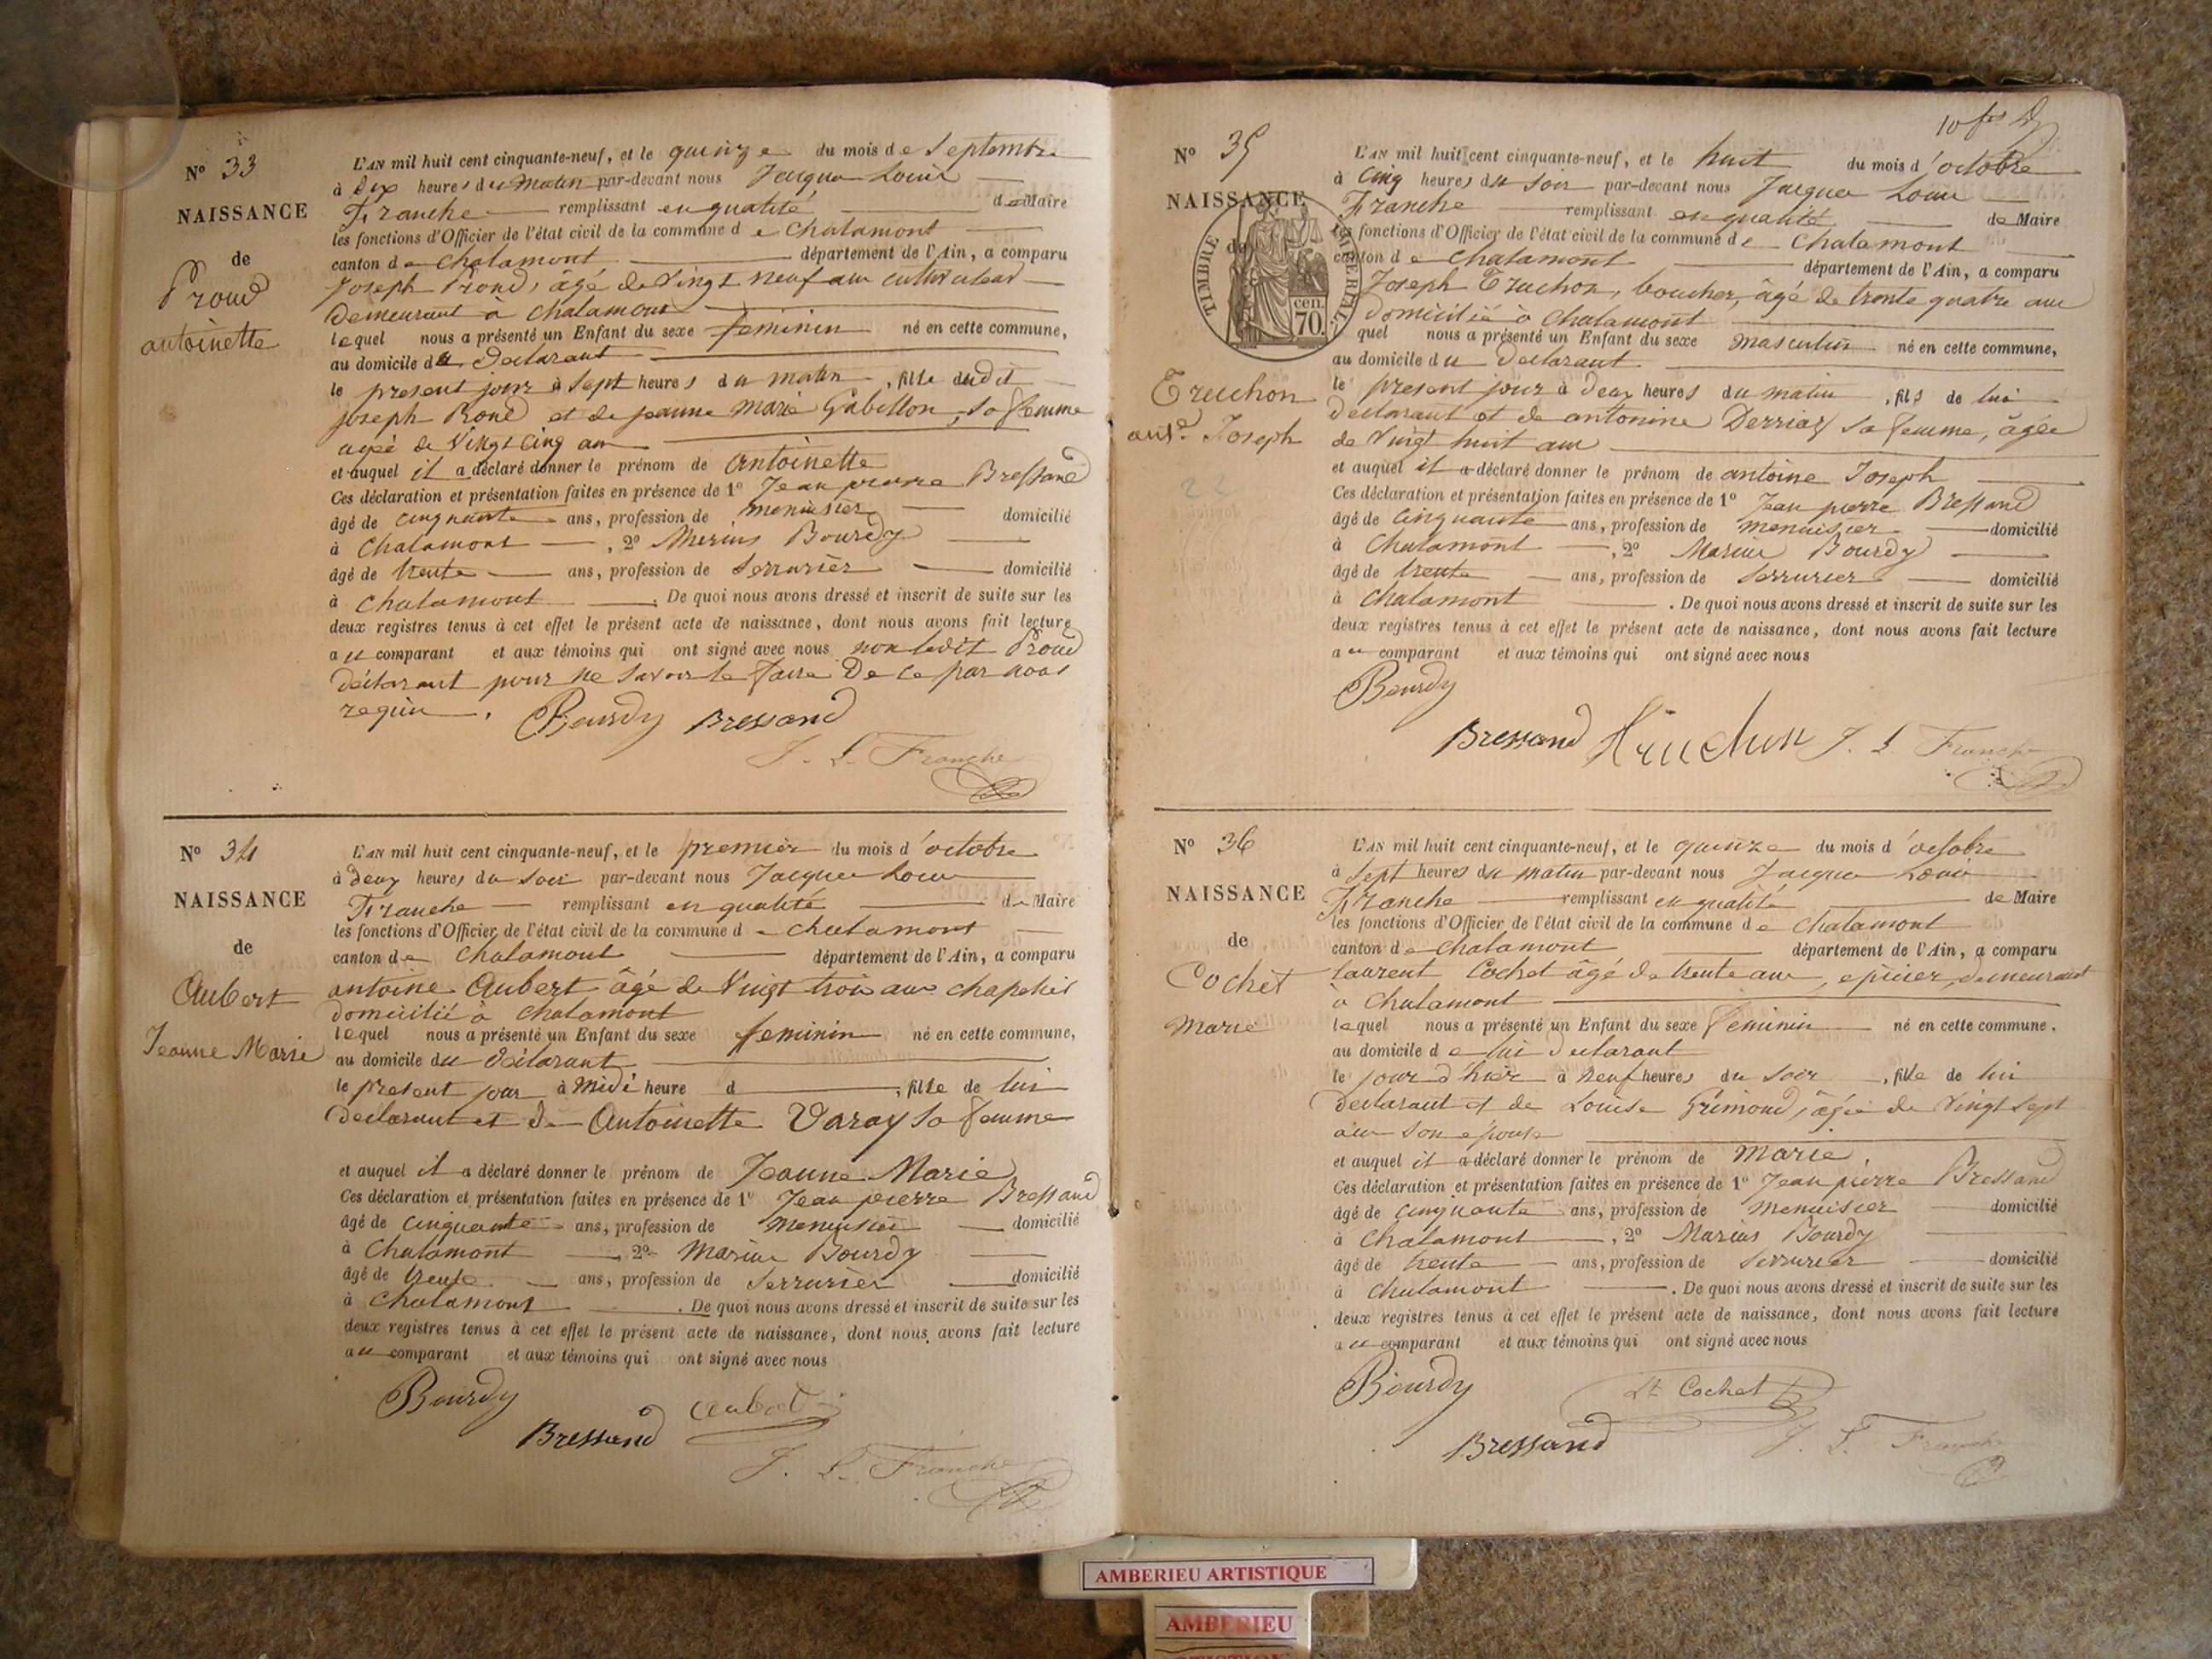 N° 33
NAISSANCE
de
Proud
antoinette
L'AN mil huit cent cinquante-neuf, et le quinze du mois de Septembre
à Dix heures du matin par-devant nous Jacques Louis
Franche remplissant en qualité de Maire
les fonctions d'Officier de l'état civil de la commune de Chalamont
canton de Chalamont département de l'Ain, a comparu
Joseph Proud, âgé de Vingt neuf ans cultivateur
Demeurant à Chalamont
lequel nous a présenté un Enfant du sexe feminin né en cette commune,
au domicile du Declarant
le present jour à Sept heures du matin, fille dudit
joseph Roud et de jeanne Marie Gabillon, sa femme
agée de Vingt Cinq ans
et auquel il a déclaré donner le prénom de Antoinette
Ces déclaration et présentation faites en présence de 1° Jean pierre Bressand
âgé de cinquante ans, profession de menuisier domicilié
à Chalamont, 2° Marius Bourdy
âgé de trente ans, profession de Serrurier domicilié
à Chalamont. De quoi nous avons dressé et inscrit de suite sur les
deux registres tenus à cet effet le présent acte de naissance, dont nous avons fait lecture
au comparant et aux témoins qui ont signé avec nous non ledit Proud
déclarant pour ne savoir le faire De ce par nous
requis.
Bourdy Bressand
J. L. Franche
N° 34
NAISSANCE
de
Aubert
Jeanne Marie
L'AN mil huit cent cinquante-neuf, et le premier du mois d'octobre
à deux heures du soir par-devant nous Jacques Louis
Franche remplissant en qualité de Maire
les fonctions d'Officier de l'état civil de la commune de Chalamont
canton de Chalamont département de l'Ain, a comparu
antoine Aubert âgé de Vingt trois ans chapelier
domicilié à Chalamont
lequel nous a présenté un Enfant du sexe feminin né en cette commune,
au domicile du Déclarant
le present jour à Midi heure d, fille de lui
Declarant et De Antoinette Varay sa femme
et auquel il a déclaré donner le prénom de Jeanne Marie
Ces déclaration et présentation faites en présence de 1° Jean pierre Bressand
âgé de cinquante ans, profession de menuisier domicilié
à Chalamont, 2° Marius Bourdy
âgé de trente ans, profession de Serrurier domicilié
à Chalamont. De quoi nous avons dressé et inscrit de suite sur les
deux registres tenus à cet effet le présent acte de naissance, dont nous avons fait lecture
au comparant et aux témoins qui ont signé avec nous
Bourdy
Bressand
J. L. Franche
N° 35
NAISSANCE
de
TIMBRE IMPERIAL
70 cen
Truchon
ant. Joseph
L'AN mil huit cent cinquante-neuf, et le huit du mois d'octobre
à Cinq heures du soir par-devant nous Jacques Louis
Franche remplissant en qualité de Maire
les fonctions d'Officier de l'état civil de la commune de Chalamont
canton de Chalamont département de l'Ain, a comparu
Joseph Truchon, boucher, âgé de trente quatre ans
Domicilié à Chalamont
quel nous a présenté un Enfant du sexe masculin né en cette commune,
au domicile du Declarant
le present jour à deux heures du matin, fils de lui
declarant et de antonine Derriaz sa femme, âgée
de Vingt huit ans
et auquel il a déclaré donner le prénom de antoine Joseph
Ces déclaration et présentation faites en présence de 1° Jean pierre Bressand
âgé de cinquante ans, profession de menuisier domicilié
à Chalamont, 2° Marius Bourdy
âgé de trente ans, profession de Serrurier domicilié
à Chalamont. De quoi nous avons dressé et inscrit de suite sur les
deux registres tenus à cet effet le présent acte de naissance, dont nous avons fait lecture
au comparant et aux témoins qui ont signé avec nous
Bourdy
Bressand Truchon J. L. Franche
N° 36
NAISSANCE
de
Cochet
Marie
L'AN mil huit cent cinquante-neuf, et le quinze du mois d'octobre
à Sept heures du matin par-devant nous Jacques Louis
Franche remplissant en qualité de Maire
les fonctions d'Officier de l'état civil de la commune de Chalamont
canton de Chalamont département de l'Ain, a comparu
Laurent Cochet âgé de trente ans, epicier, demeurant
à Chalamont
lequel nous a présenté un Enfant du sexe feminin né en cette commune,
au domicile de lui Declarant
le jour d'hier à neuf heures du soir, fille de lui
Declarant et de Louise Grimond, âgée de Vingt sept
ans son épouse
et auquel il a déclaré donner le prénom de Marie.
Ces déclaration et présentation faites en présence de 1° Jean pierre Bressand
âgé de cinquante ans, profession de Menuisier domicilié
à Chalamont, 2° Marius Bourdy
âgé de trente ans, profession de Serrurier domicilié
à Chalamont. De quoi nous avons dressé et inscrit de suite sur les
deux registres tenus à cet effet le présent acte de naissance, dont nous avons fait lecture
au comparant et aux témoins qui ont signé avec nous
Bourdy Lt Cochet
Bressand J. L. Franche
AMBERIEU ARTISTIQUE
AMBERIEU